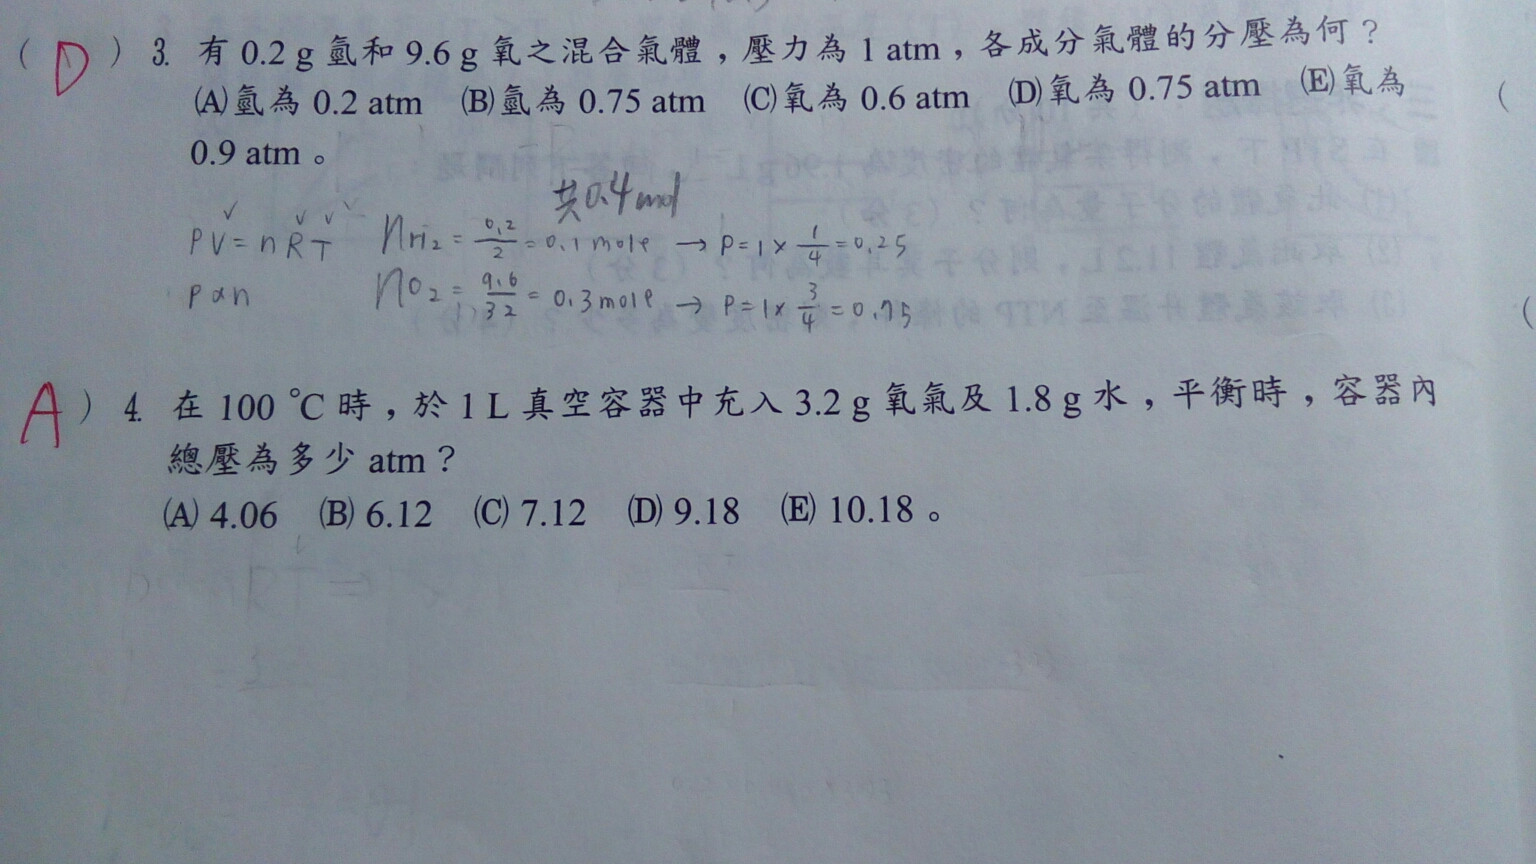 ( D ) 3. 有 0.2 g 氫和 9.6 g 氧之混合氣體，壓力為 1 atm，各成分氣體的分壓為何？
(A)氫為 0.2 atm (B)氫為 0.75 atm (C)氧為 0.6 atm (D)氧為 0.75 atm (E)氧為
0.9 atm。
共0.4mol
PV=nRT nH₂ = 0.2/2 = 0.1 mole → P=1×1/4=0.25
P∝n nO₂ = 9.6/32 = 0.3mole → P=1×3/4=0.75
A ) 4. 在 100 ℃ 時，於 1 L 真空容器中充入 3.2 g 氧氣及 1.8 g 水，平衡時，容器內
總壓為多少 atm？
(A) 4.06 (B) 6.12 (C) 7.12 (D) 9.18 (E) 10.18。